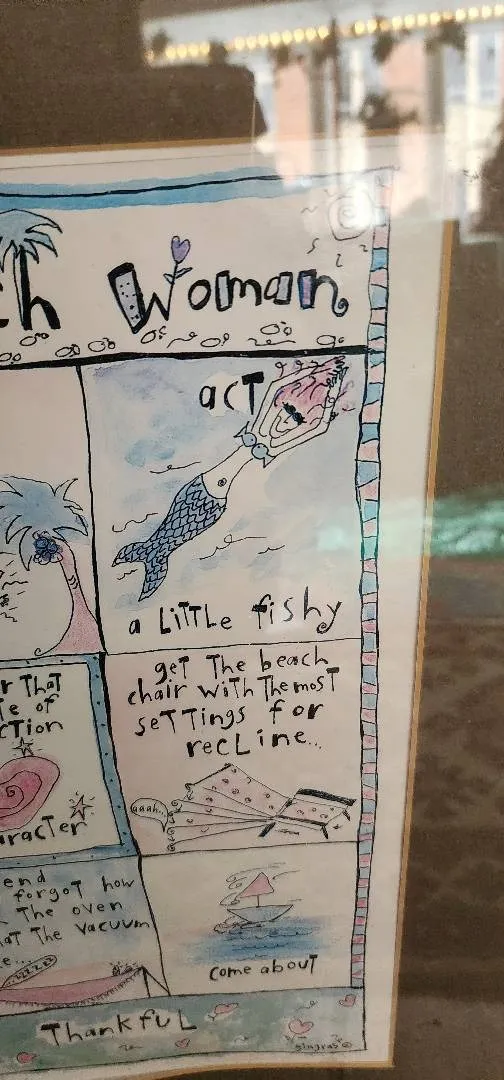 Woman
act
a little fishy
get the beach
chair with the most
settings for
recline...
aaah...
r that
te of
ction
aracter
end
forgot how
the oven
at the vacuum
e...
zzzzz
come about
Thankful